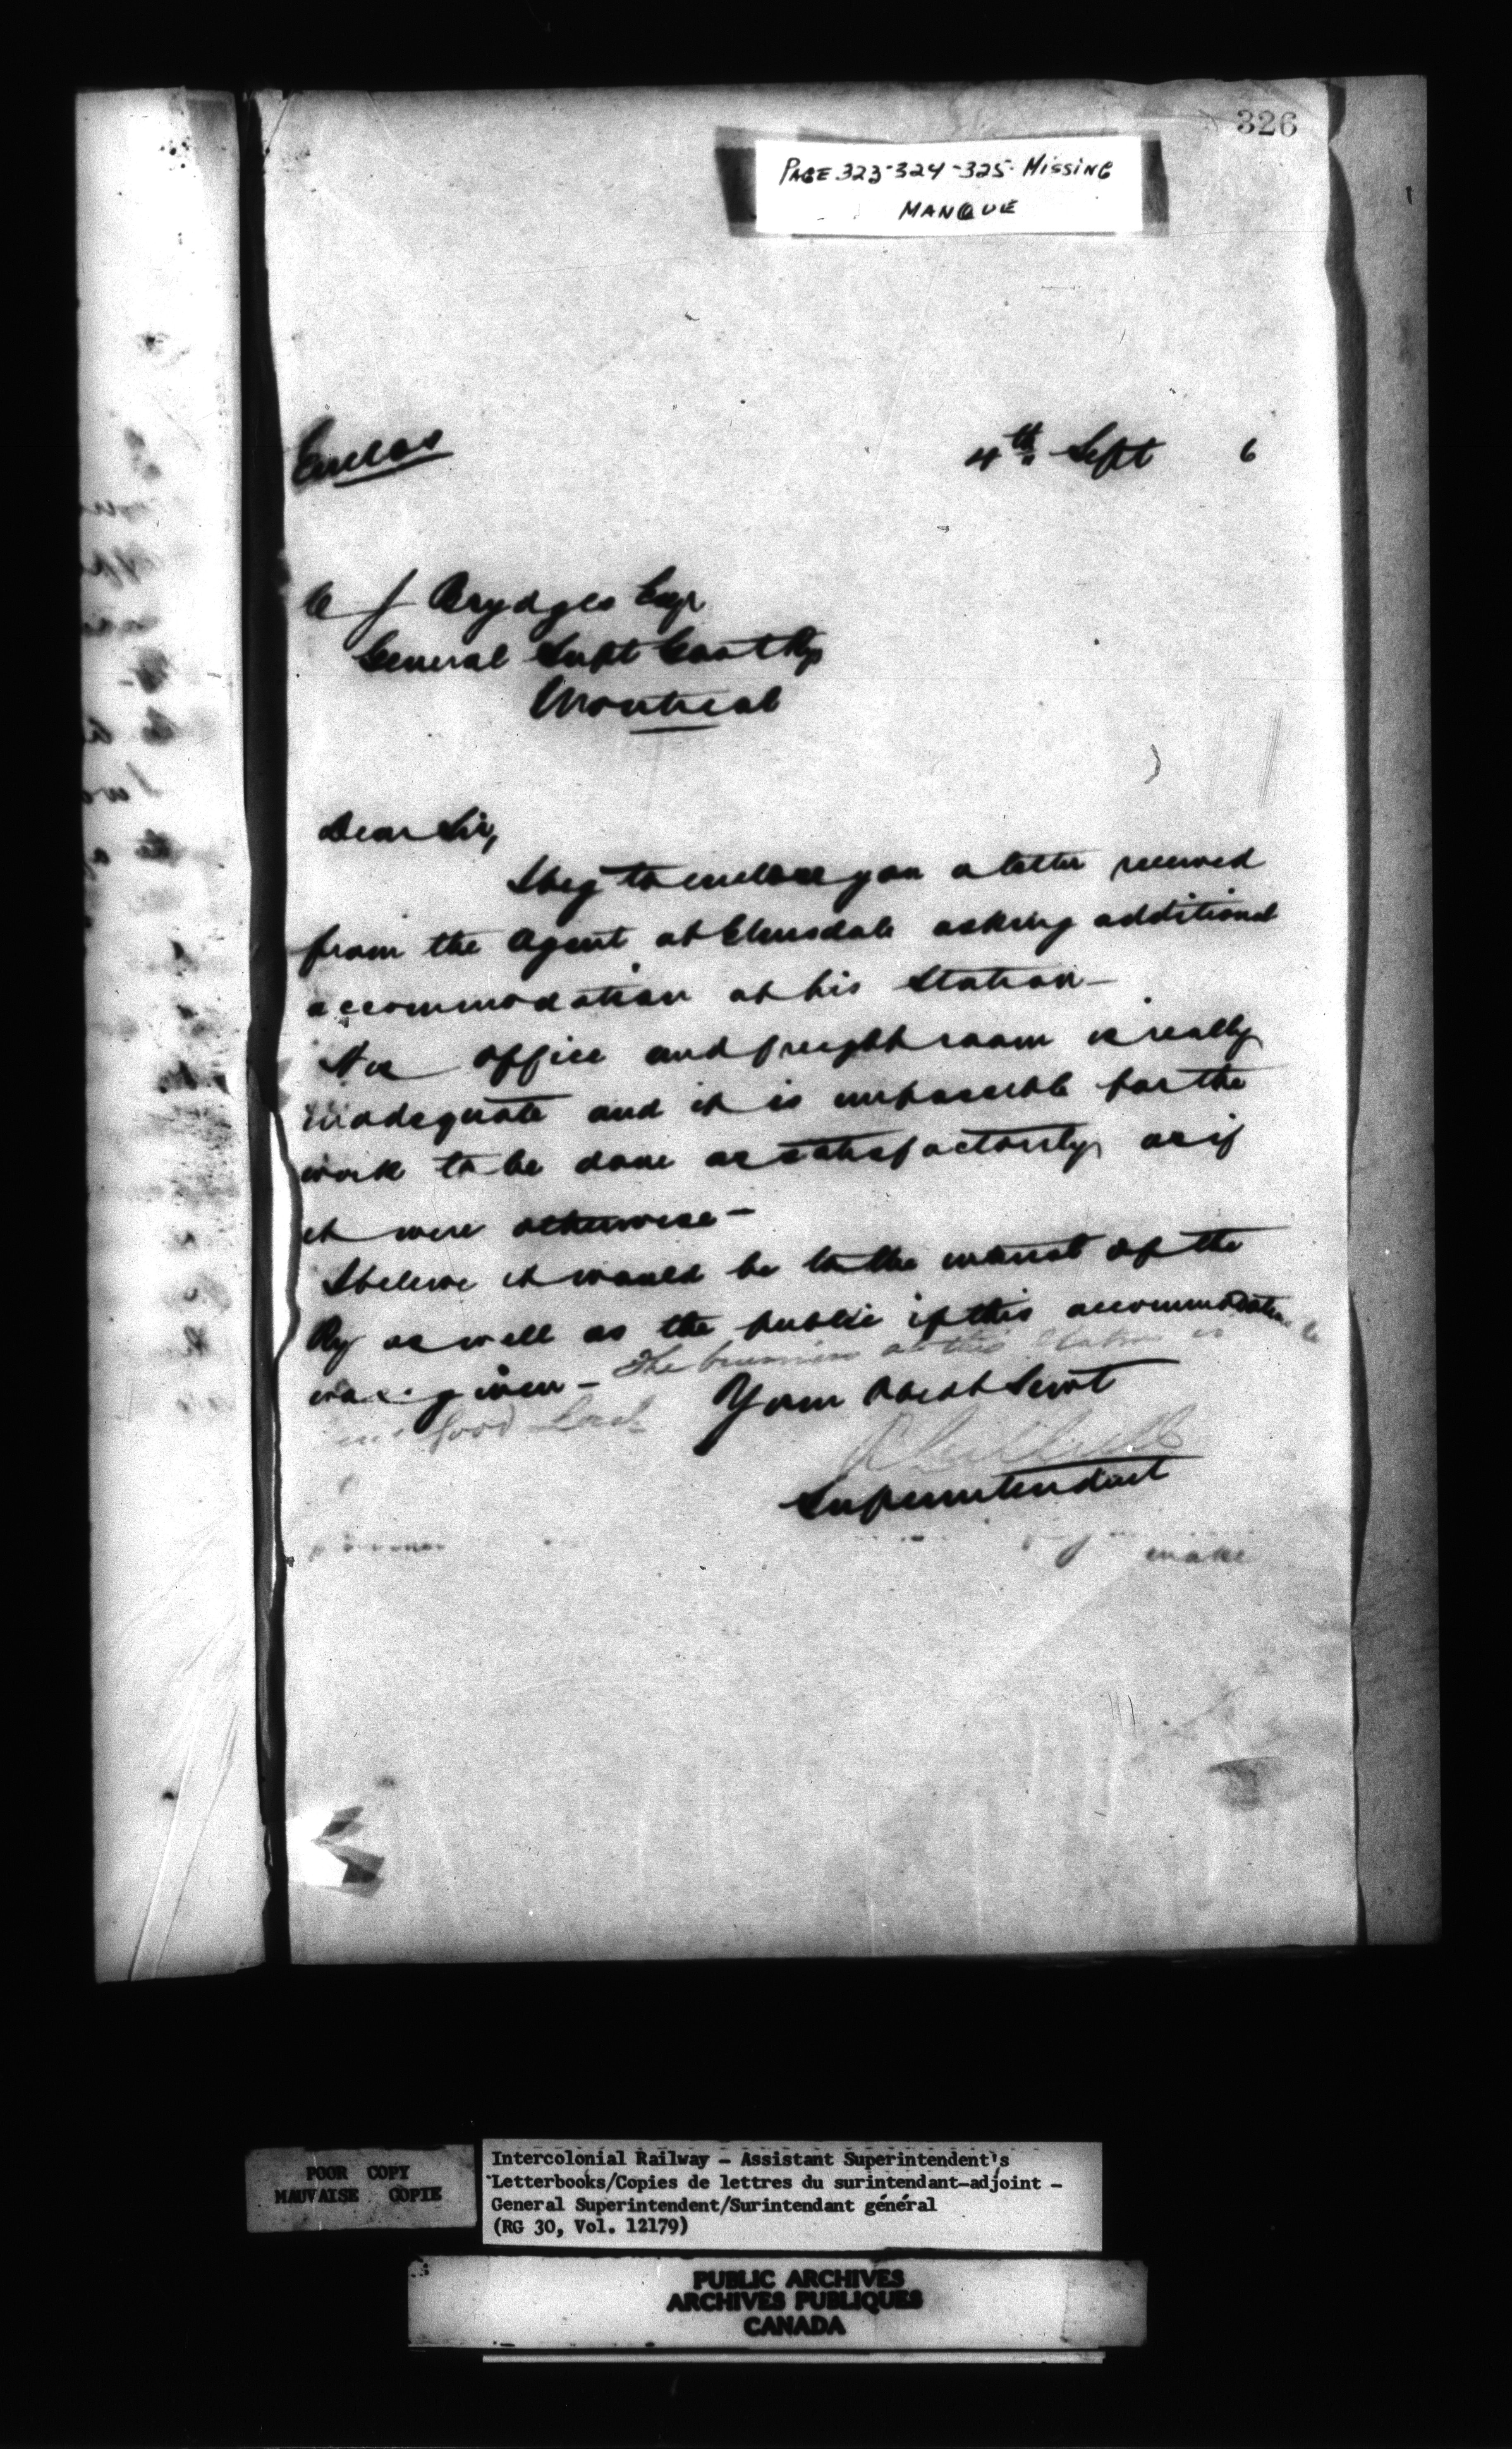 326
PAGE 323-324-325- MISSING
MANQUE
Enclos
4th Sept 6
C J Brydges Esqr
General Supt Govt Rys
Montreal
Dear Sir,
I beg to enclose you a letter received
from the Agent at Elmsdale asking additional
accommodation at his Station —
His office and freight room is really
inadequate and it is impossible for the
work to be done as satisfactorily as if
it were otherwise —
I believe it would be to the interest of the
Ry as well as the public if this accommodation
was given — The business at this Station is
good
Your Obedt Servt
Superintendent
make
POOR COPY
MAUVAISE COPIE
Intercolonial Railway - Assistant Superintendent's
Letterbooks/Copies de lettres du surintendant-adjoint -
General Superintendent/Surintendant général
(RG 30, Vol. 12179)
PUBLIC ARCHIVES
ARCHIVES PUBLIQUES
CANADA